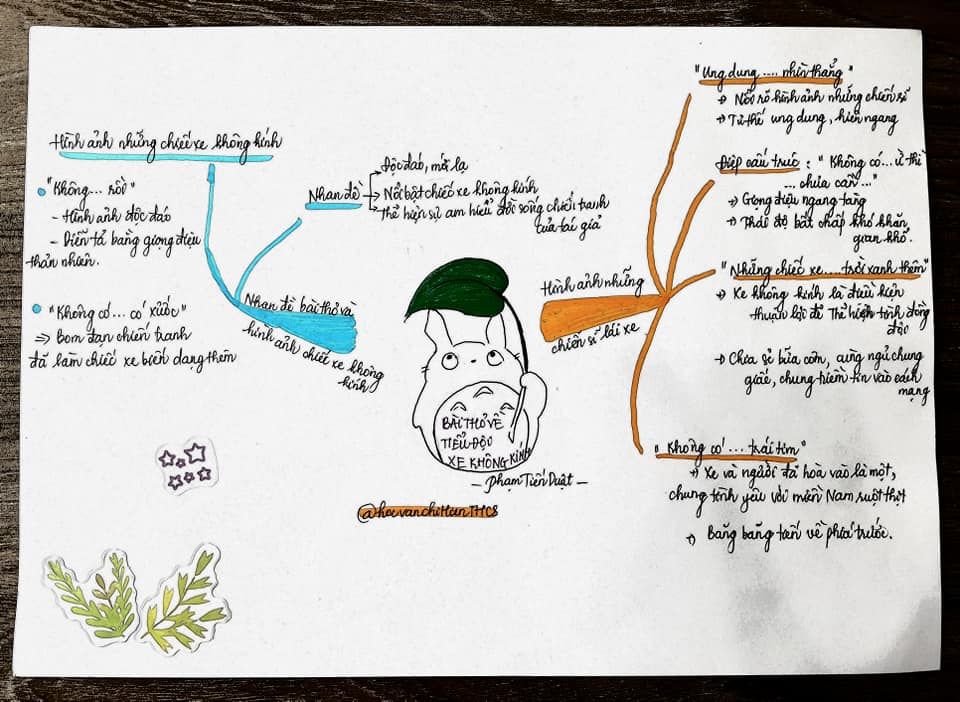 Hình ảnh những chiếc xe không kính
"Không... rồi"
- Hình ảnh độc đáo
- Diễn tả bằng giọng điệu
thản nhiên.
"Không có... có xước"
=> Bom đạn chiến tranh
đã làm chiếc xe biến dạng thêm
Nhan đề
Độc đáo, mới lạ
Nổi bật chiếc xe không kính
Thể hiện sự am hiểu đời sống chiến tranh
của tác giả
Nhan đề bài thơ và
hình ảnh chiếc xe không
kính
BÀI THƠ VỀ
TIỂU ĐỘI
XE KHÔNG KÍNH
- Phạm Tiến Duật -
@hocvanchiHienTHCS
Hình ảnh những
chiến sĩ lái xe
"Ung dung .... nhìn thẳng"
→ Nổi rõ hình ảnh những chiến sĩ
→ Tư thế ung dung, hiên ngang
Điệp cấu trúc : " Không có... ừ thì
... chưa cần..."
→ Giọng điệu ngang tàng
→ Thái độ bất chấp khó khăn,
gian khổ.
"Những chiếc xe.... trời xanh thêm"
→ Xe không kính là điều kiện
thuận lợi để thể hiện tình đồng
đội
→ Chia sẻ bữa cơm, cùng ngủ chung
giấc, chung niềm tin vào cách
mạng
"Không có ... trái tim"
→ Xe và người đã hoà vào là một,
chung tình yêu với miền Nam ruột thịt
→ Băng băng tiến về phía trước.